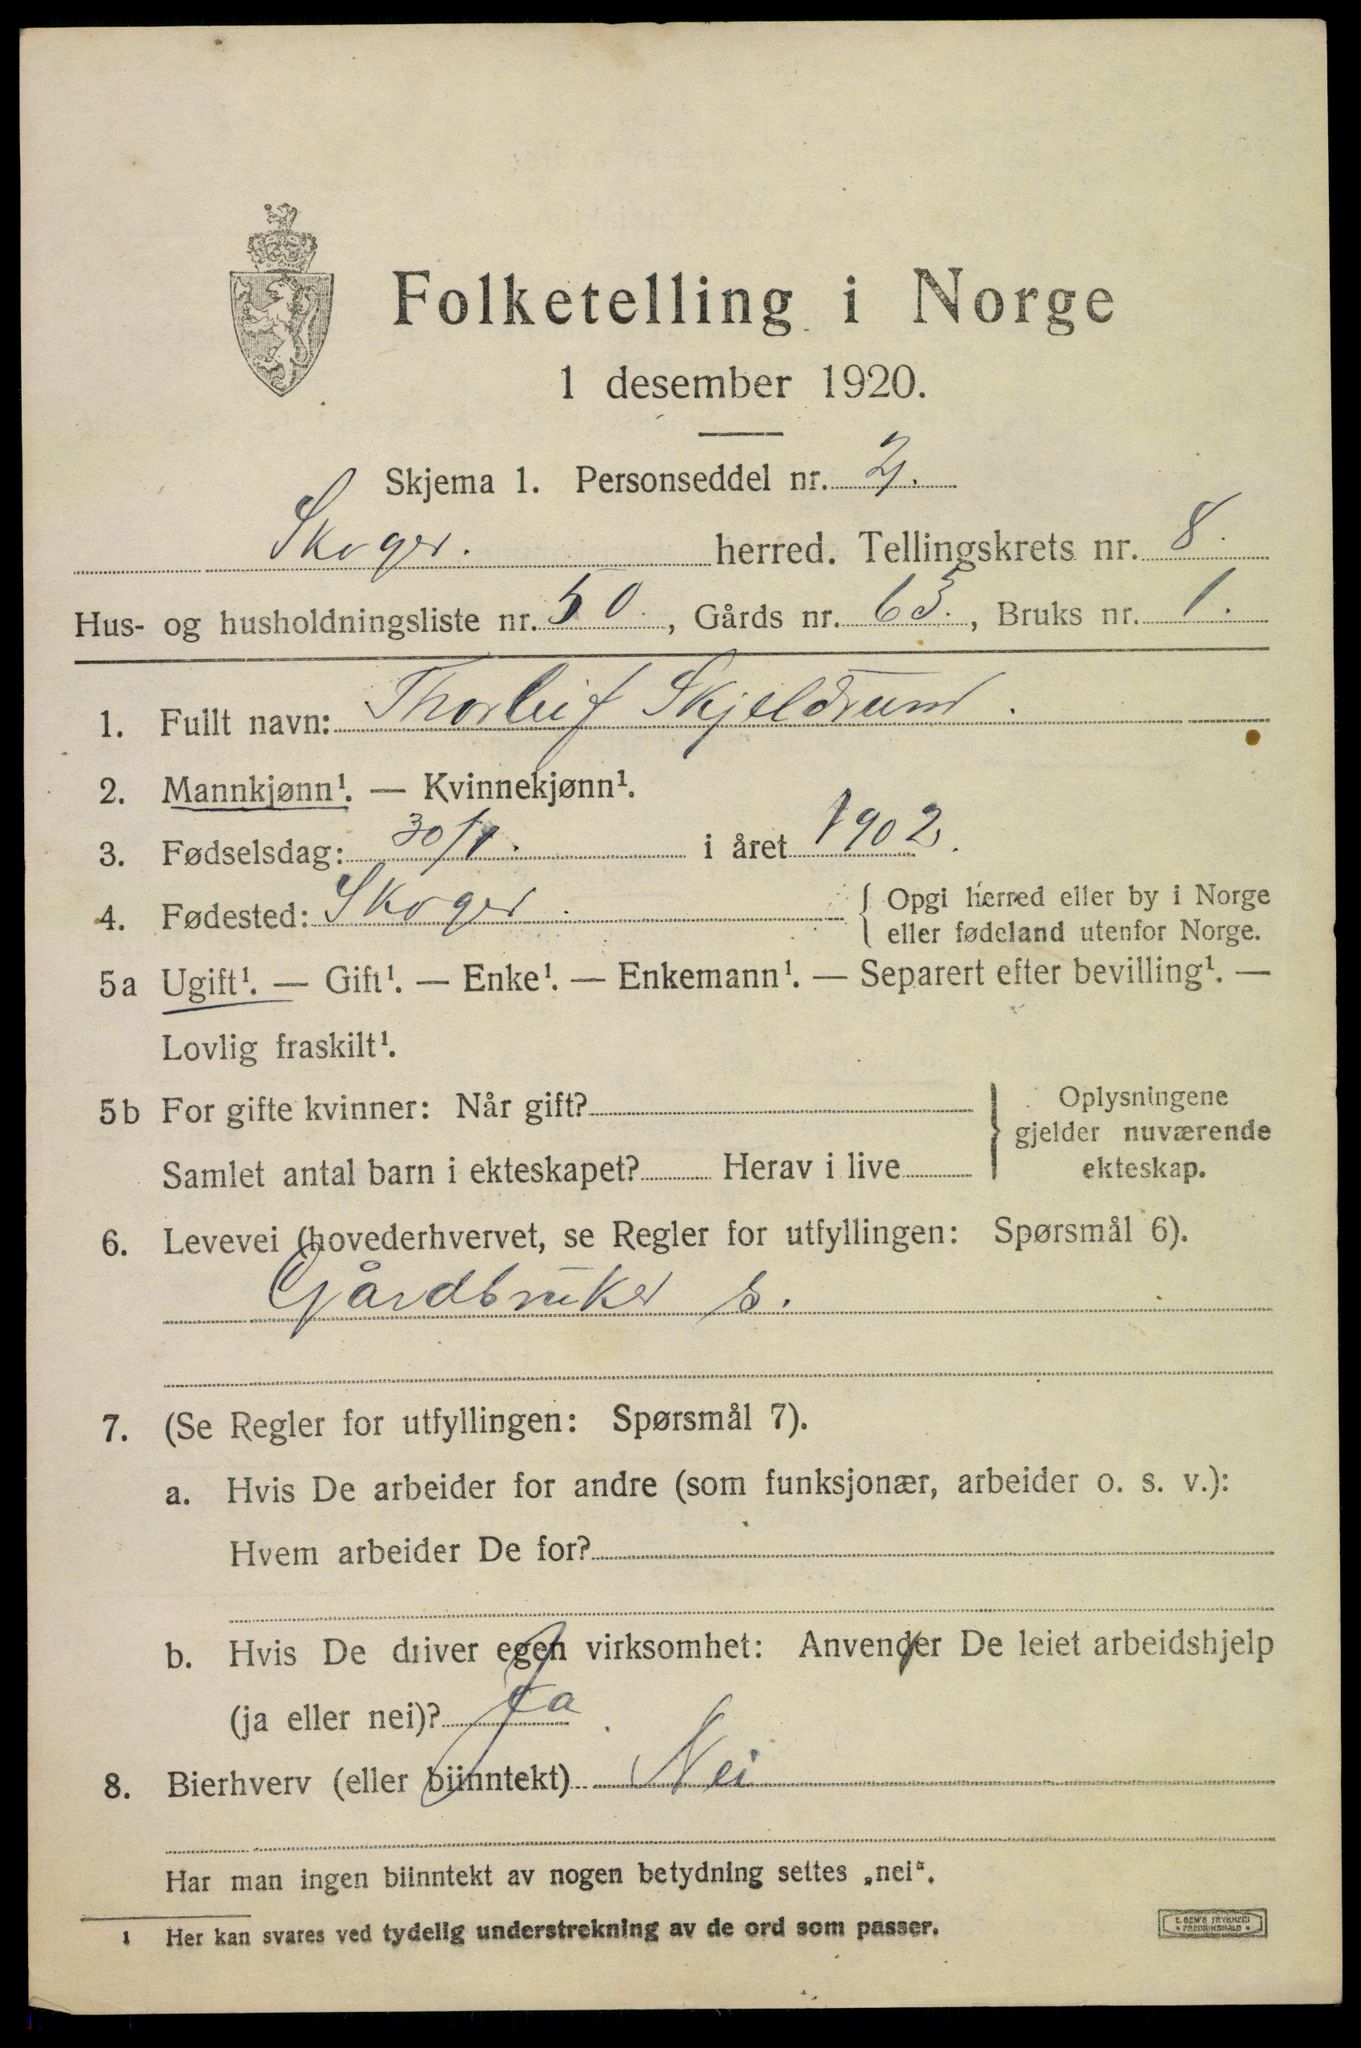 Folketelling i Norge
1 desember 1920.
Skjema 1. Personseddel nr. 2.
Skoger. herred. Tellingskrets nr. 8.
Hus- og husholdningsliste nr. 50., Gårds nr. 63., Bruks nr. 1.
1. Fullt navn: Thorleif Skjeldrum.
2. Mannkjønn¹. — Kvinnekjønn¹.
3. Fødselsdag: 30/1. i året 1902.
4. Fødested: Skoger. { Opgi herred eller by i Norge
eller fødeland utenfor Norge.
5a Ugift¹. — Gift¹. — Enke¹. — Enkemann¹. — Separert efter bevilling¹. —
Lovlig fraskilt¹.
5b For gifte kvinner: Når gift? } Oplysningene
gjelder nuværende
Samlet antal barn i ekteskapet? Herav i live ekteskap.
6. Levevei (hovederhvervet, se Regler for utfyllingen: Spørsmål 6).
Gårdbruker s.
7. (Se Regler for utfyllingen: Spørsmål 7).
a. Hvis De arbeider for andre (som funksjonær, arbeider o. s. v.):
Hvem arbeider De for?
b. Hvis De driver egen virksomhet: Anvender De leiet arbeidshjelp
(ja eller nei)? Ja.
8. Bierhverv (eller biinntekt) Nei
Har man ingen biinntekt av nogen betydning settes „nei“.
1 Her kan svares ved tydelig understrekning av de ord som passer.